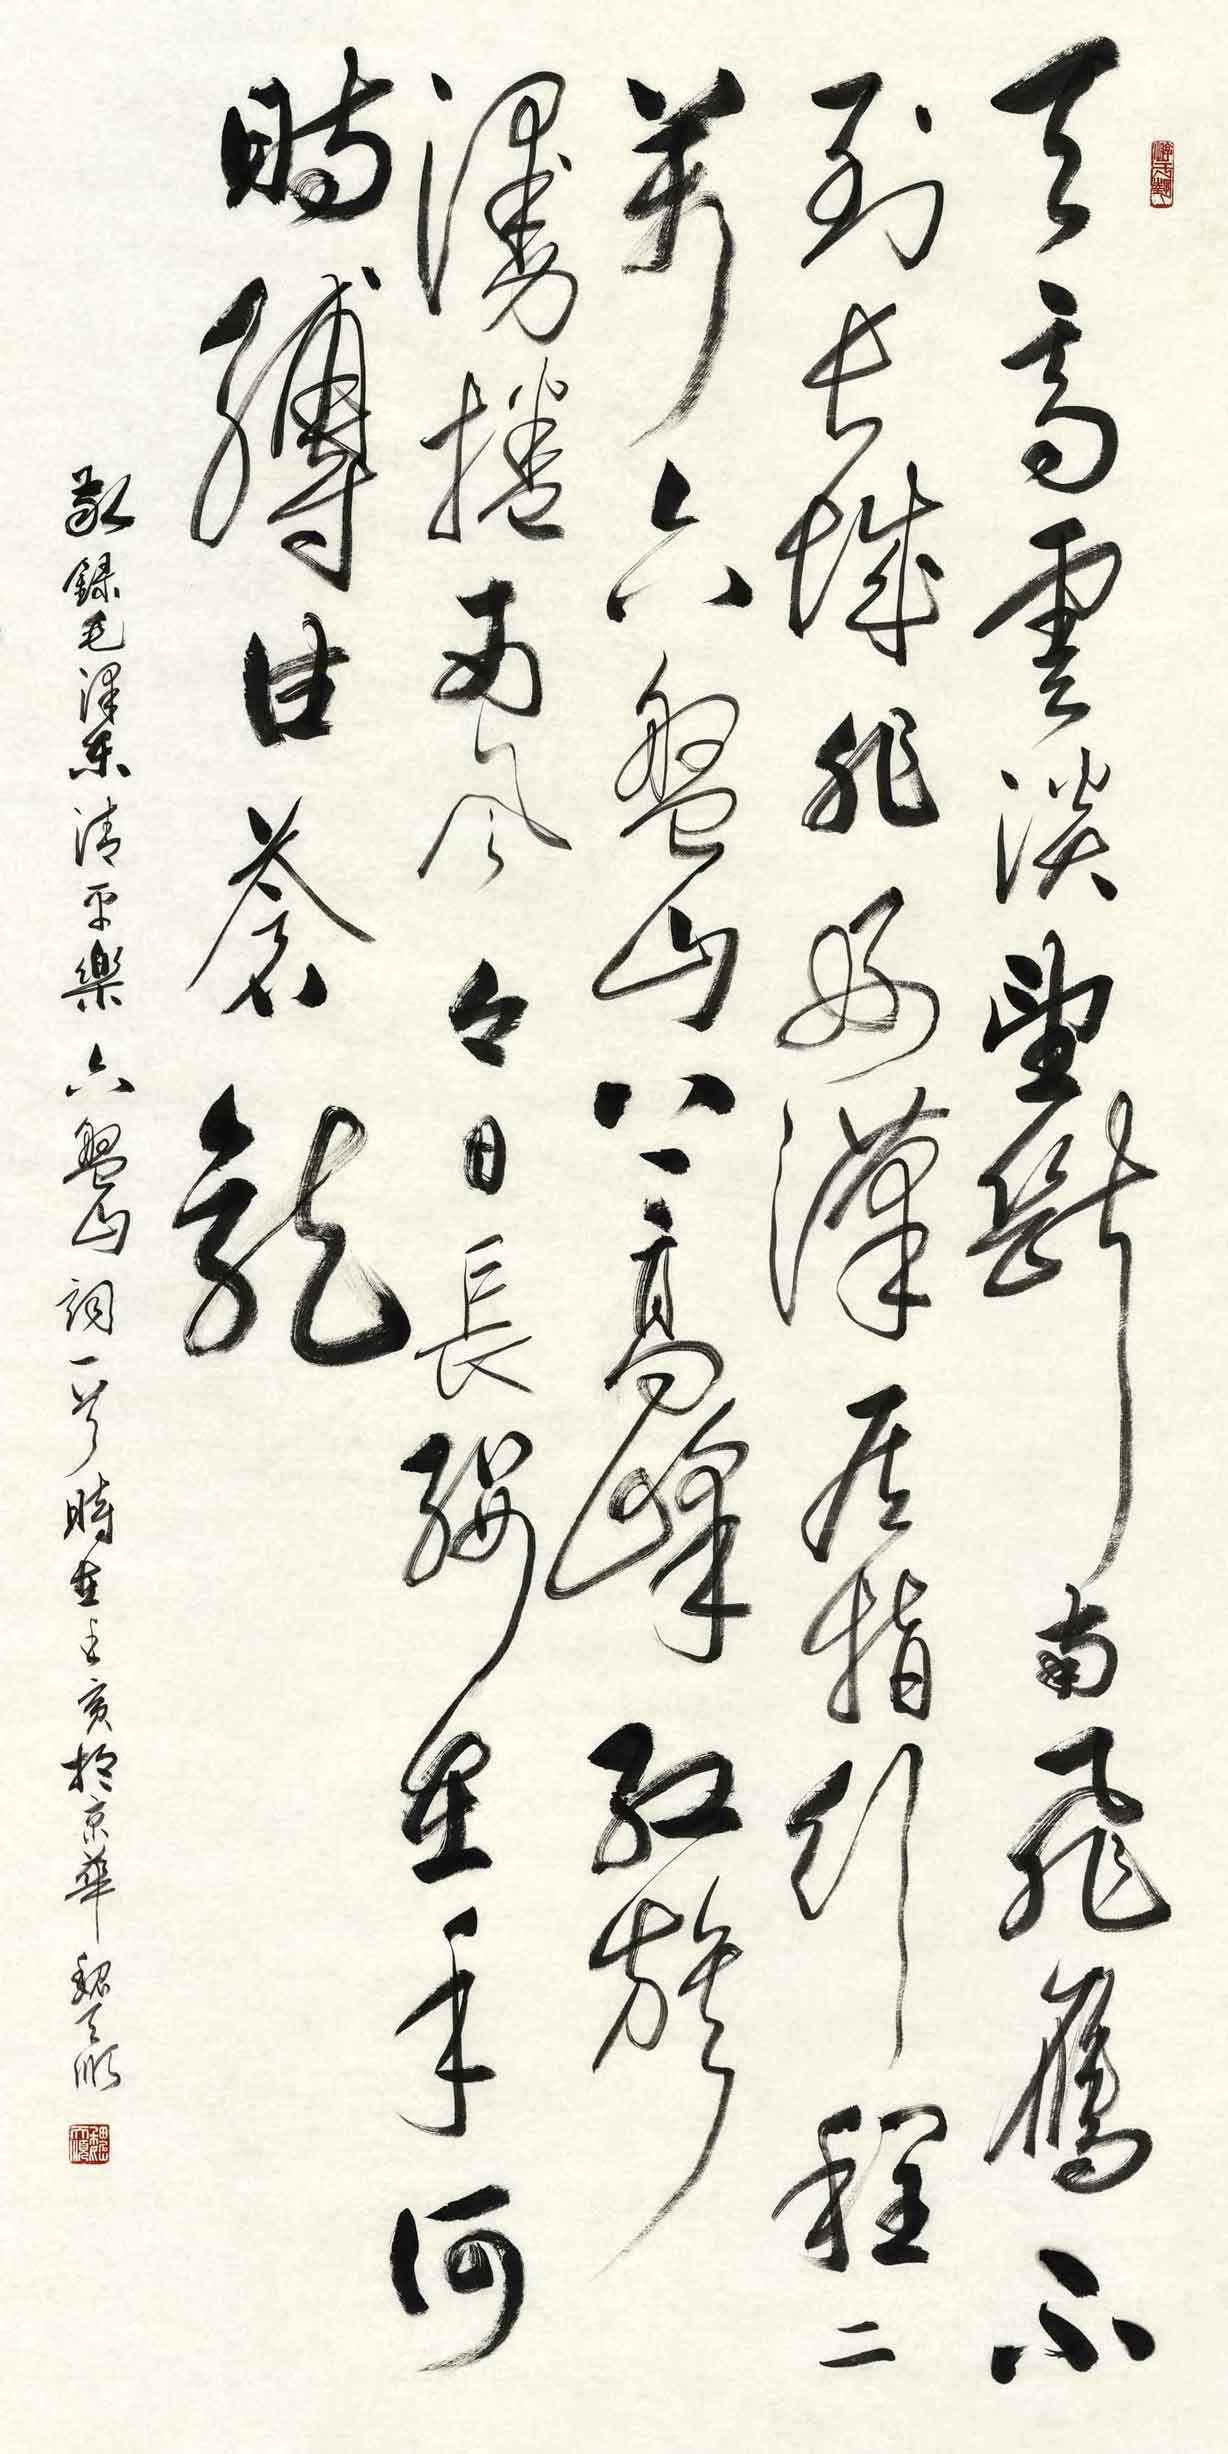 天高雲淡望斷南飛鴈不
到長城非好漢屈指行程二
萬六盤山上高峰紅旗
漫捲西風今日長纓在手何
時縛住蒼龍
敬錄毛澤東清平樂六盤山詞一首時在己亥於京華魏天順